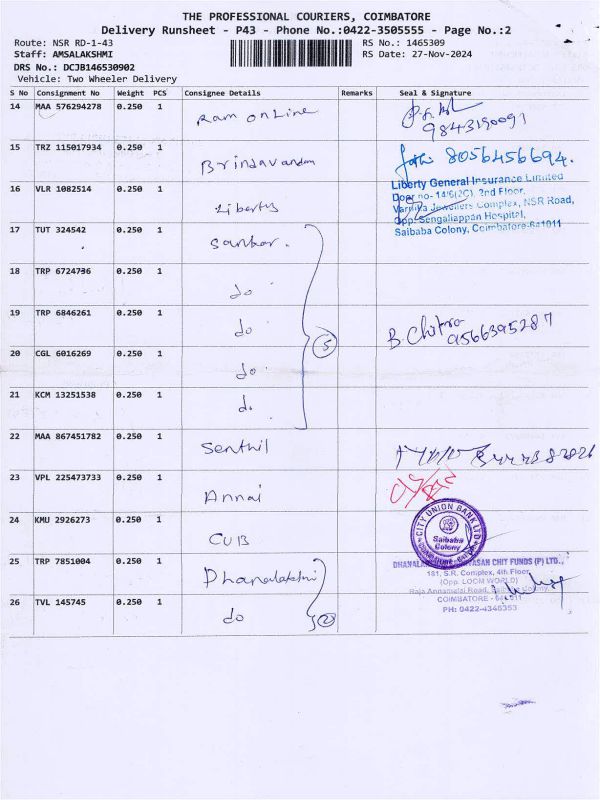 THE PROFESSIONAL COURIERS, COIMBATORE
Delivery Runsheet - P43 - Phone No.:0422-3505555 - Page No.:2
Route: NSR RD-1-43 RS No.: 1465309
Staff: AMSALAKSHMI RS Date: 27-Nov-2024
DRS No.: DCJB146530902
Vehicle: Two Wheeler Delivery
S No Consignment No Weight PCS Consignee Details Remarks Seal & Signature
14 MAA 576294278 0.250 1 Ram online
9843190091
15 TRZ 115017934 0.250 1 Brindavandam 8056456694.
16 VLR 1082514 0.250 1 Liberty
Liberty General Insurance Limited
Door no- 14/6(2C), 2nd Floor,
Varnika Jewellers Complex, NSR Road,
Opp. Sengaliappan Hospital,
Saibaba Colony, Coimbatore-641011
17 TUT 324542 0.250 1 Sankar.
18 TRP 6724796 0.250 1 do
19 TRP 6846261 0.250 1 do 5 B. Chitra
9566395287
20 CGL 6016269 0.250 1 do
21 KCM 13251538 0.250 1 do
22 MAA 867451782 0.250 1 Senthil
23 VPL 225473733 0.250 1 Annai
24 KMU 2926273 0.250 1 CUB
CITY UNION BANK LTD
Saibaba
Colony
25 TRP 7851004 0.250 1 Dhanalakshmi
CHIT FUNDS (P) LTD.,
181, S.R. Complex, 4th Floor,
(Opp. LOOM WORLD)
Raja Annamalai Road, Colony,
26 TVL 145745 0.250 1 do 2
COIMBATORE - 641011
PH: 0422-4346353